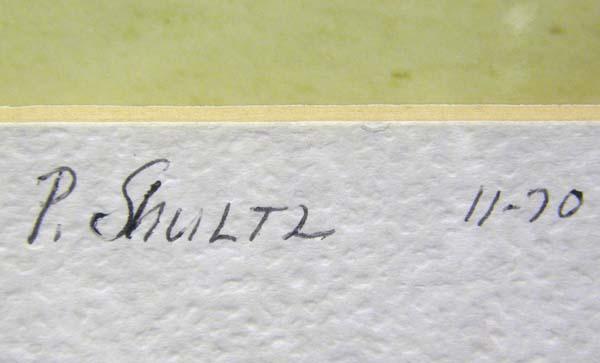 P. SHULTZ 11-70